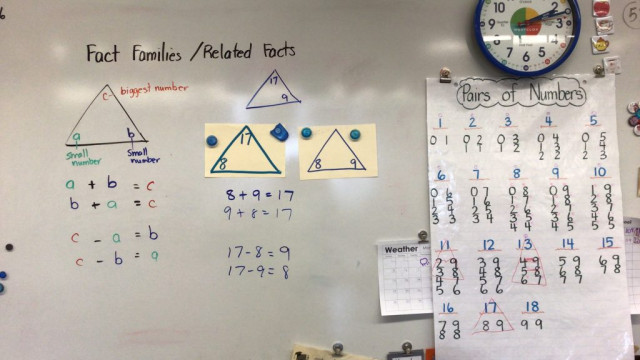 Fact Families / Related Facts
c biggest number
a b
small number small number
a + b = c
b + a = c
c - a = b
c - b = a
17
9
17
8
8 9
8 + 9 = 17
9 + 8 = 17
17 - 8 = 9
17 - 9 = 8
10 11 12 1 2 3 4 5 6 7 8
Weather
Pairs of Numbers
1 2 3 4 5
0 1 0 2 0 3 0 4 0 5
1 1 1 2 1 3 1 4
2 2 2 3
6 7 8 9 10
0 6 0 7 0 8 0 9 1 9
1 5 1 6 1 7 1 8 2 8
2 4 2 5 2 6 2 7 3 7
3 3 3 4 3 5 3 6 4 6
4 4 4 5 5 5
11 12 13 14 15
2 9 3 9 4 9 5 9 6 9
3 8 4 8 5 8 6 8 7 8
4 7 5 7 6 7 7 7
5 6 6 6
16 17 18
7 9 8 9 9 9
8 8
5